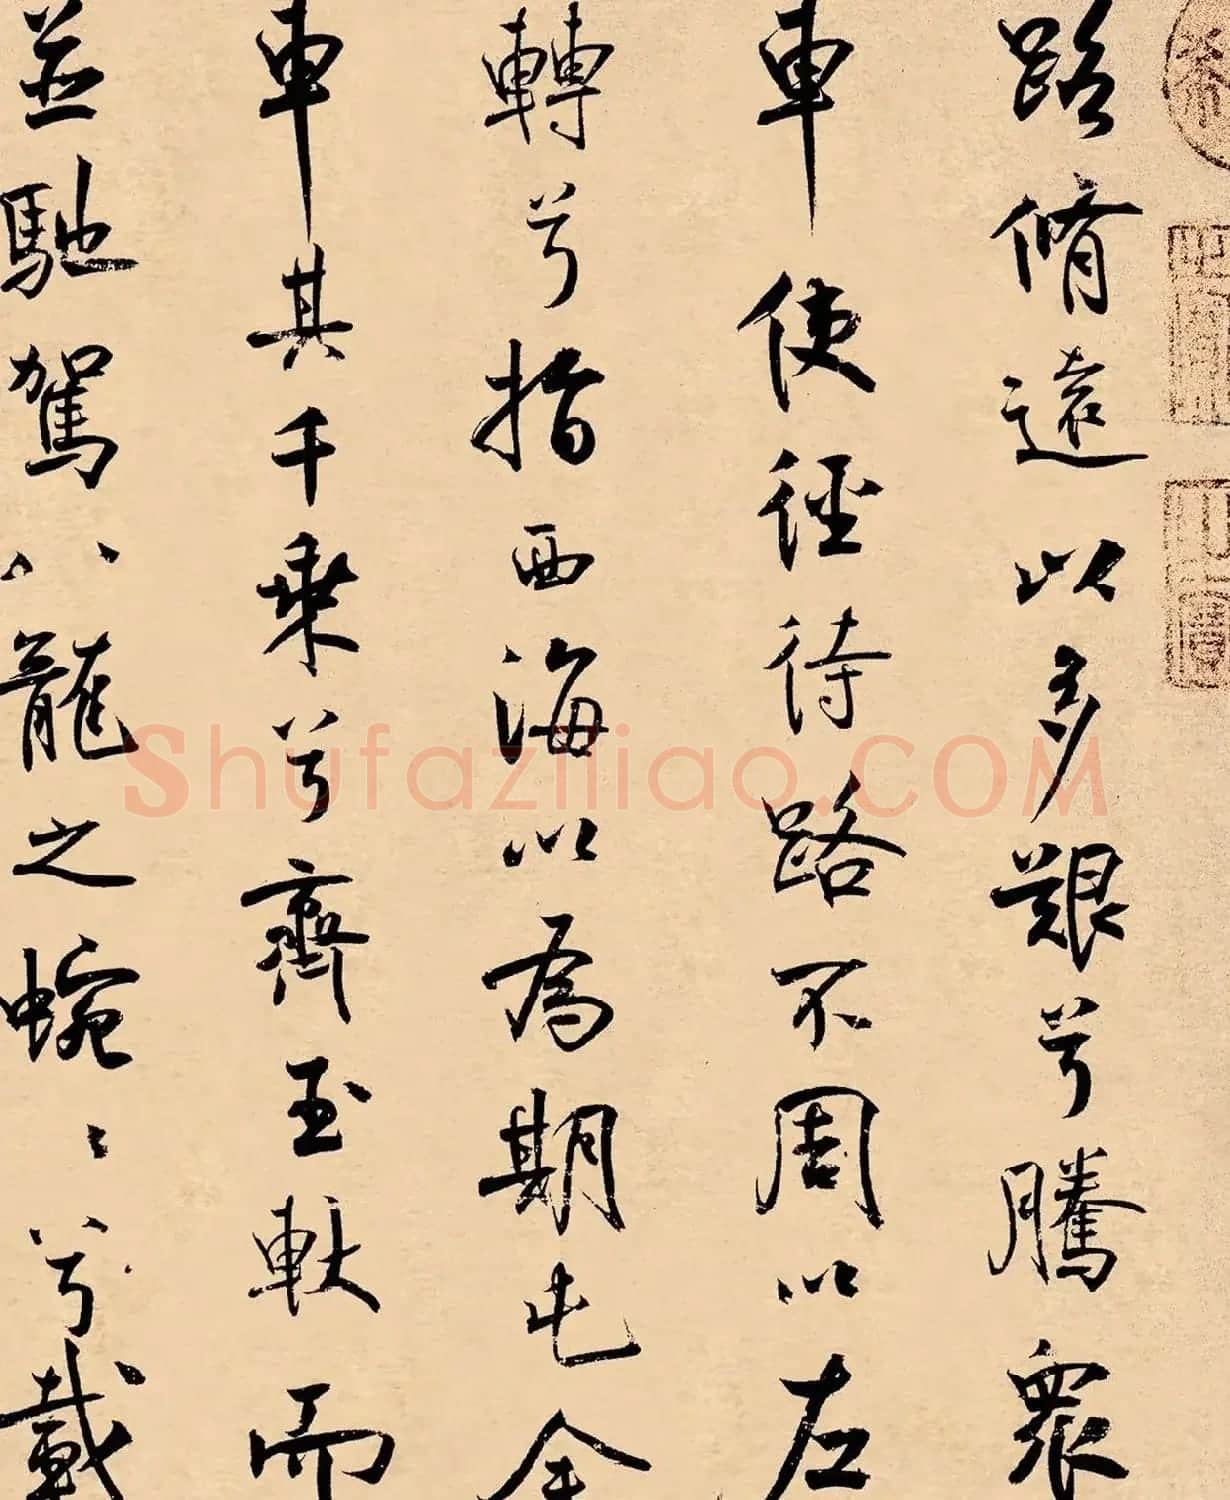 路脩遠以多艱兮騰衆
車使徑待路不周以左
轉兮指西海以為期屯余
車其千乘兮齊玉軑而
並馳駕八龍之蜿〻兮載
Shufaziliao.COM